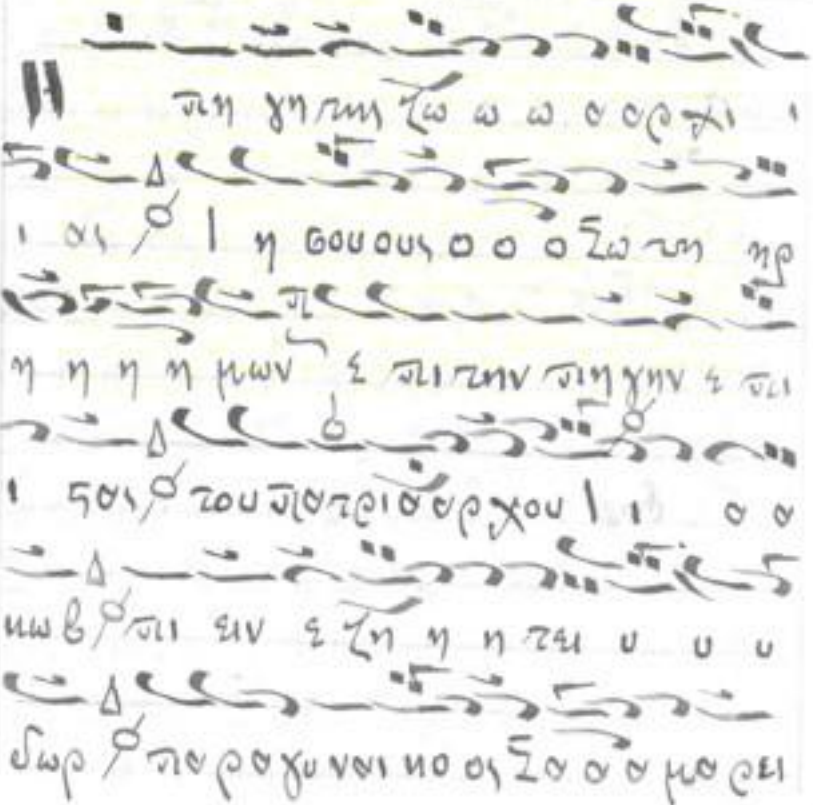 Η πη γη της ζω ω ω α αρ χι ι
ι ας Ι η σου ους ο ο ο Σω τη ηρ
η η η η μων ε πι την πη γην ε πι
ι στας του πα τρι α αρ χου Ι ι α α
κω β πι ειν ε ζη η η τει υ υ υ
δωρ πα ρα γυ ναι κο ος Σα α α μα ρει